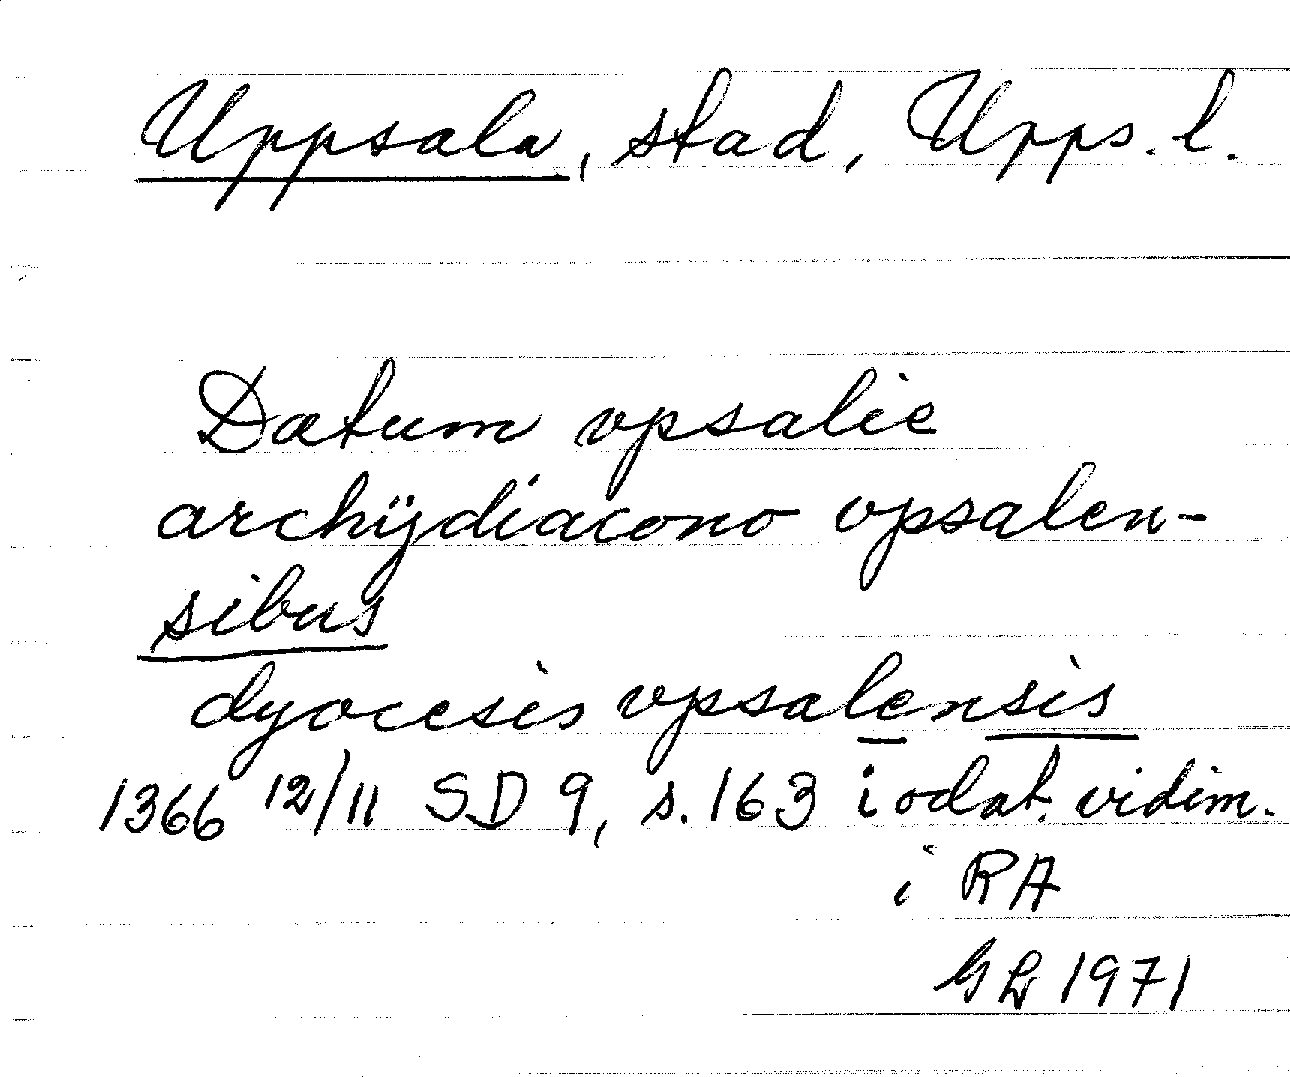 Uppsala, stad, Upps. l.
Datum vpsalie
archÿdiacono vpsalen-
sibus
dyocesis vpsalensis
1366 12/11 SD 9, s. 163 i odat. vidim.
i RA
GL 1971